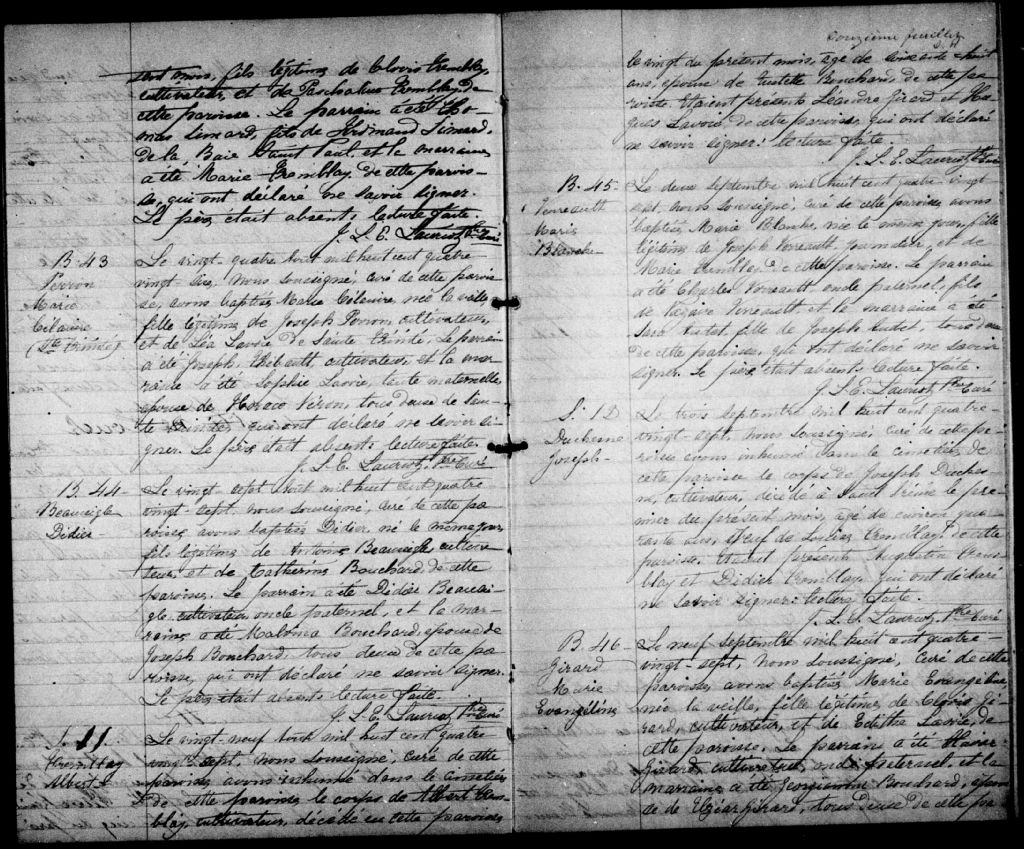 fils légitime de Clovis Tremblay,
cultivateur, et de Tremblay, de
cette paroisse. Le parrain a été Tho-
mas Simard, fils de Ferdinand Simard,
de la Baie Saint Paul, et la marraine
a été Marie Tremblay, de cette parois-
se, qui ont déclaré ne savoir signer.
Le père était absent. Lecture faite.
J. L. E. Lauriot, Ptre Curé
B. 43
Perron
Marie
Célanire
Le vingt-quatre août mil huit cent quatre
vingt sept, nous soussigné, curé de cette parois-
se, avons baptisé Marie Célanire, née la veille,
fille légitime de Joseph Perron, cultivateur,
et de Léa Lavoie de Sainte Le parrain
a été Joseph Thibault, cultivateur, et la mar-
raine a été Sophie Lavoie, tante maternelle,
épouse de Horace Véron, tous deux de Sain-
te qui ont déclaré ne savoir si-
gner. Le père était absent. Lecture faite.
J. L. E. Lauriot, Ptre Curé
B. 44
Beauceigle
Didier
Le vingt-sept août mil huit cent quatre
vingt-sept, nous soussigné, curé de cette pa-
roisse, avons baptisé Didier, né le même jour,
fils légitime de Antoine Beauceigle, cultiva-
teur, et de Catherine Bouchard, de cette
paroisse. Le parrain a été Didier Beaucei-
gle, cultivateur, oncle paternel, et la mar-
raine a été Malvina Bouchard, épouse de
Joseph Bouchard, tous deux de cette pa-
roisse, qui ont déclaré ne savoir signer.
Le père était absent. Lecture faite.
J. L. E. Lauriot, Ptre Curé
S. 11
Tremblay
Albert
Le vingt-neuf août mil huit cent quatre
vingt sept, nous soussigné, curé de cette
paroisse, avons inhumé dans le cimetière
de cette paroisse le corps de Albert Trem-
blay, cultivateur, décédé en cette paroisse,
Douzième feuillet
le vingt du présent mois, âgé de soixante huit
ans, époux de Bouchard, de cette pa-
roisse. Étaient présents Léandre Girard et Hu-
gues Lavoie, de cette paroisse, qui ont déclaré
ne savoir signer. Lecture faite.
J. L. E. Lauriot, Ptre Curé
B. 45
Verreault
Marie
Blanche
Le deux septembre mil huit cent quatre-vingt
sept, nous soussigné, curé de cette paroisse, avons
baptisé Marie Blanche, née le même jour, fille
légitime de Joseph Verreault, journalier, et de
Marie Tremblay, de cette paroisse. Le parrain
a été Charles Verreault oncle paternel, fils
de Verreault, et la marraine a été
Sara Audet, fille de Joseph Audet, tous deux
de cette paroisse, qui ont déclaré ne savoir
signer. Le père était absent. Lecture faite.
J. L. E. Lauriot, Ptre Curé
S. 12
Duchesne
Joseph
Le trois septembre mil huit cent quatre-
vingt-sept, nous soussigné, curé de cette pa-
roisse avons inhumé dans le cimetière de
cette paroisse le corps de Joseph Duches-
ne, cultivateur, décédé à Saint Irénée le pre-
mier du présent mois, âgé de environ qua-
rante ans, veuf de Louise Tremblay, de cette
paroisse. Étaient présents Augustin Trem-
blay et Didier Tremblay, qui ont déclaré
ne savoir signer. Lecture faite.
J. L. E. Lauriot, Ptre Curé
B. 46
Girard
Marie
Evangéline
Le neuf septembre mil huit cent quatre-
vingt-sept, nous soussigné, curé de cette
paroisse, avons baptisé Marie Evangéline
née la veille, fille légitime de Clovis Gi-
rard, cultivateur, et de Editha Lavoie, de
cette paroisse. Le parrain a été
Girard, cultivateur, oncle paternel, et la
marraine a été Georgianna Bouchard, épou-
se de Elzéar Girard, tous deux de cette pa